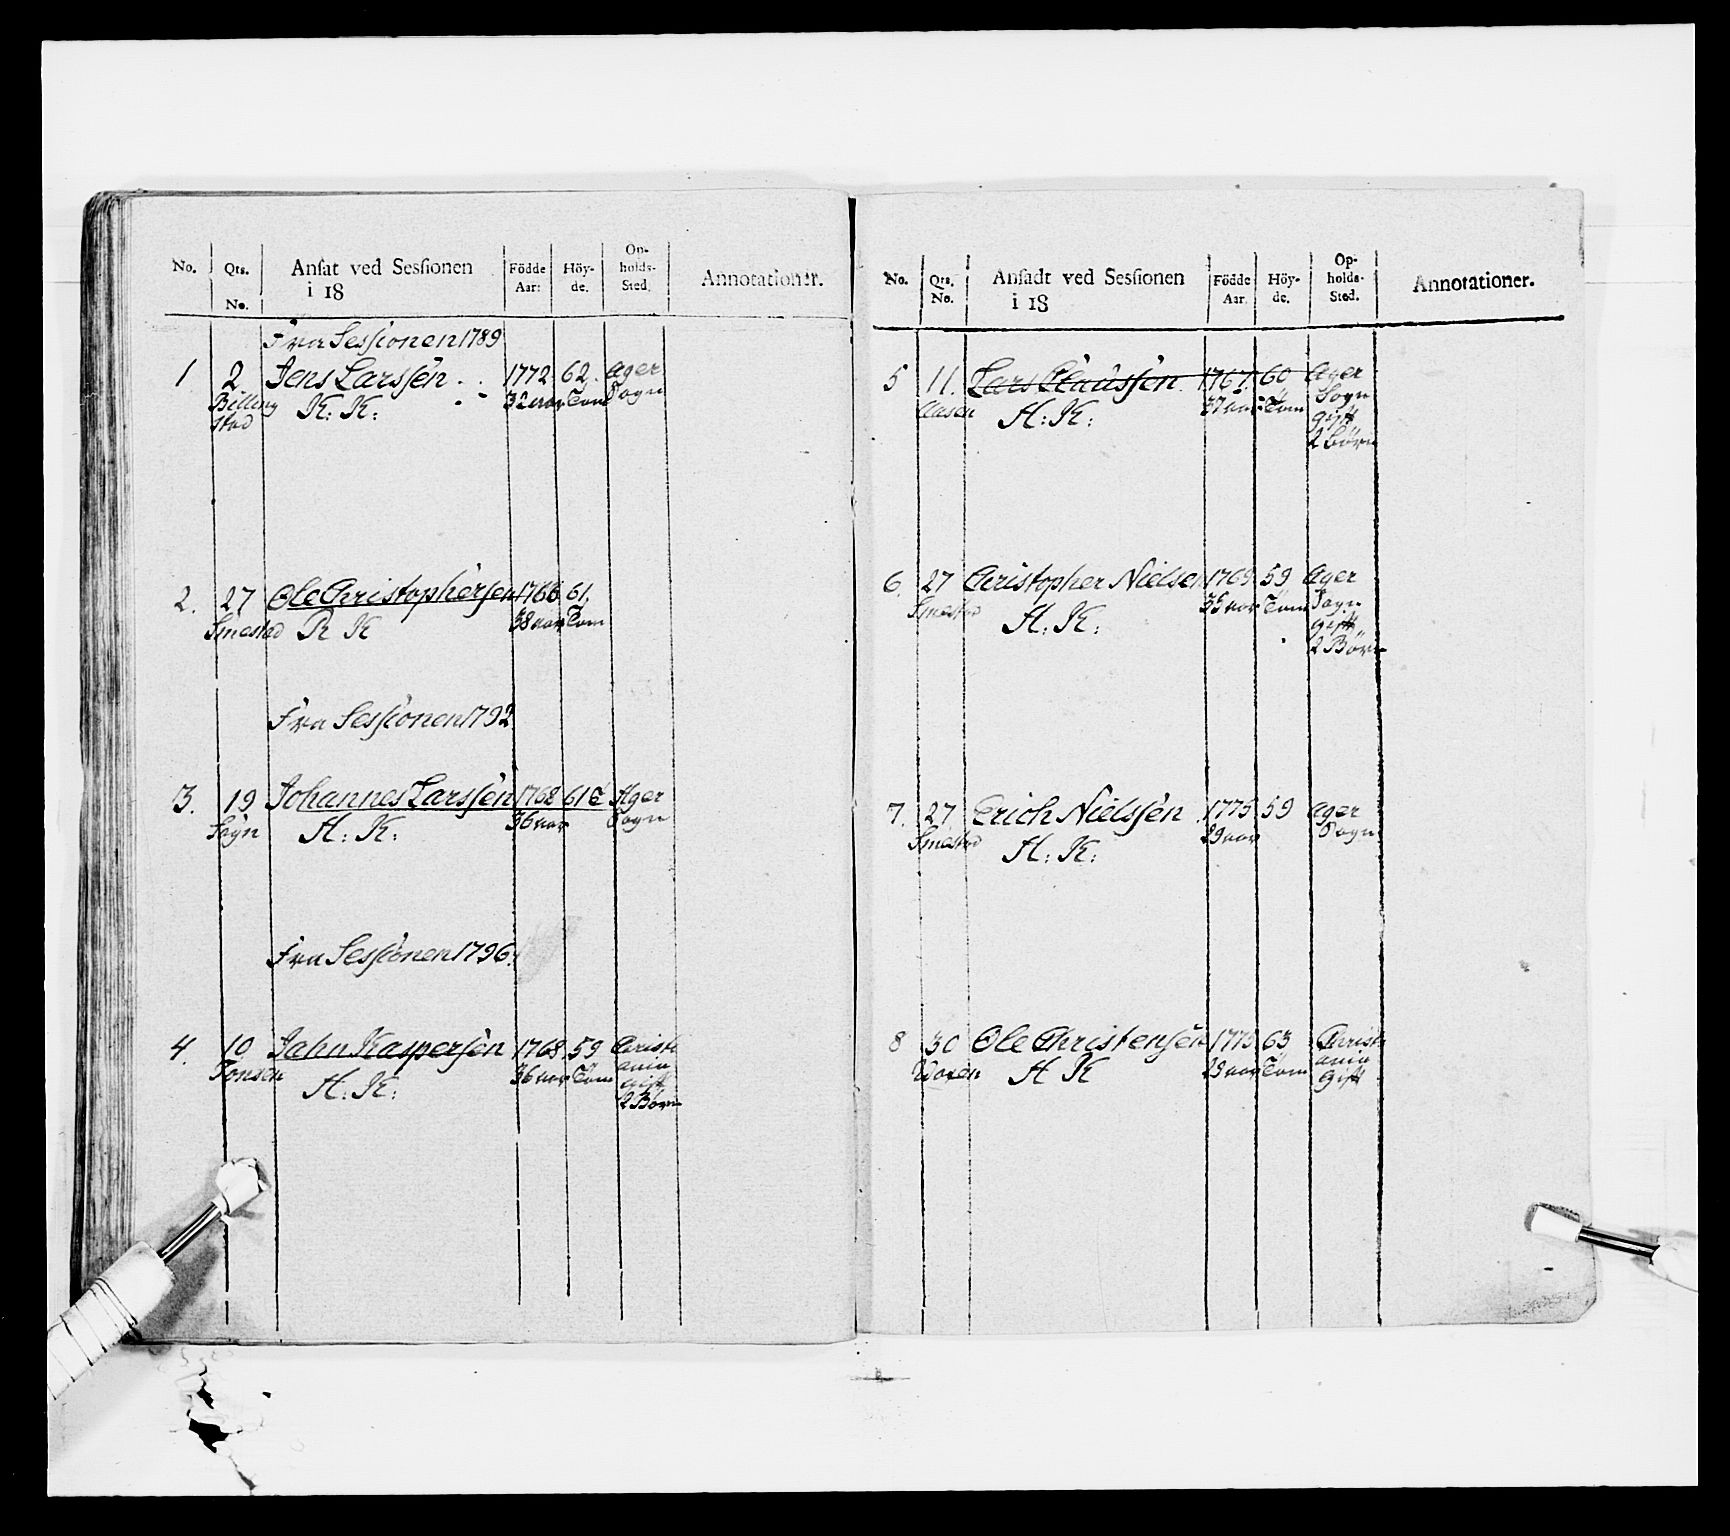 No. Qts. No. Ansat ved Sessionen i 18 Födde Aar: Höyde. Opholds-Sted. Annotationer.
Fra Sessionen 1789
1 2 Jens Larssen 1772 62 Ager
Billingstad K: K: 32 aar Tom Sogn
2. 27 Ole Christophersen 1766 61.
Smestad R K 38 aar Tom
Fra Sessionen 1792
3. 19 Johannes Larssen 1768 61 T Ager
Sogn H: K: 36 aar Sogn
Fra Sessionen 1796.
4. 10 Jahn Kaspersen 1768 59 Christi
Tonsen H: K: 36 aar Tom ania
gift
2 Börn
No. Qts. No. Ansadt ved Sessionen i 18 Födde Aar Höyde. Opholds-Sted. Annotationer.
5 11. Lars Claussen 1767. 60 Ager
Aasen H: K: 37 aar Tom Sogn
gift
2 börn
6. 27 Christopher Nielsen 1769 59 Ager
Smestad H: K: 35 aar Tom Sogn
gift
2 Börn
7. 27 Erich Nielssen 1775 59 Ager
Smestad H: K: 29 aar Sogn
8 30 Ole Christensen 1775 63 Christi
H K 29 aar Tom ania
Gift